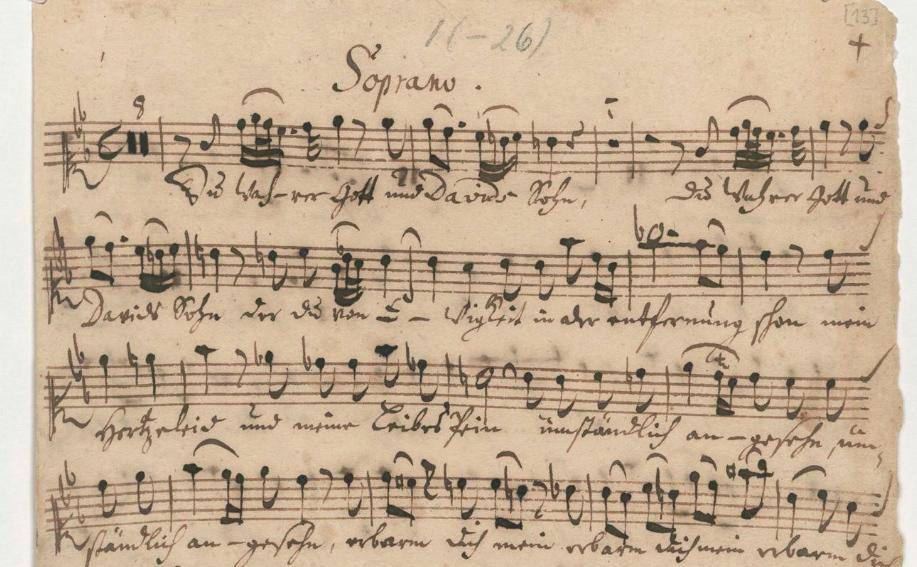 [13]
1(-26)
Soprano.
8
Du wah-rer Gott und Davids Sohn, du wahrer Gott und
Davids Sohn der du von E-wigkeit in der entfernung schon mein
Hertzeleid und meine Leibes Pein umständlich an-gesehn, um-
ständlich an-gesehn, erbarm dich mein erbarm dich mein erbarm dich